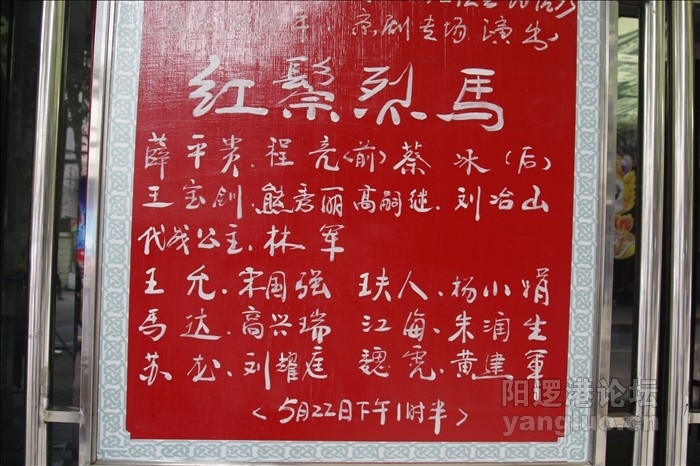 京剧专场演出
红鬃烈马
薛平贵、程亮(前)蔡冰(后)
王宝钏、熊彦丽 高嗣继、刘冶山
代战公主、林军
王允、宋国强 夫人、杨小娟
马达、高兴瑞 江海、朱润生
苏龙、刘耀庭 魏虎、黄建军
<5月22日下午1时半>
阳逻港论坛
yangluo.com.cn